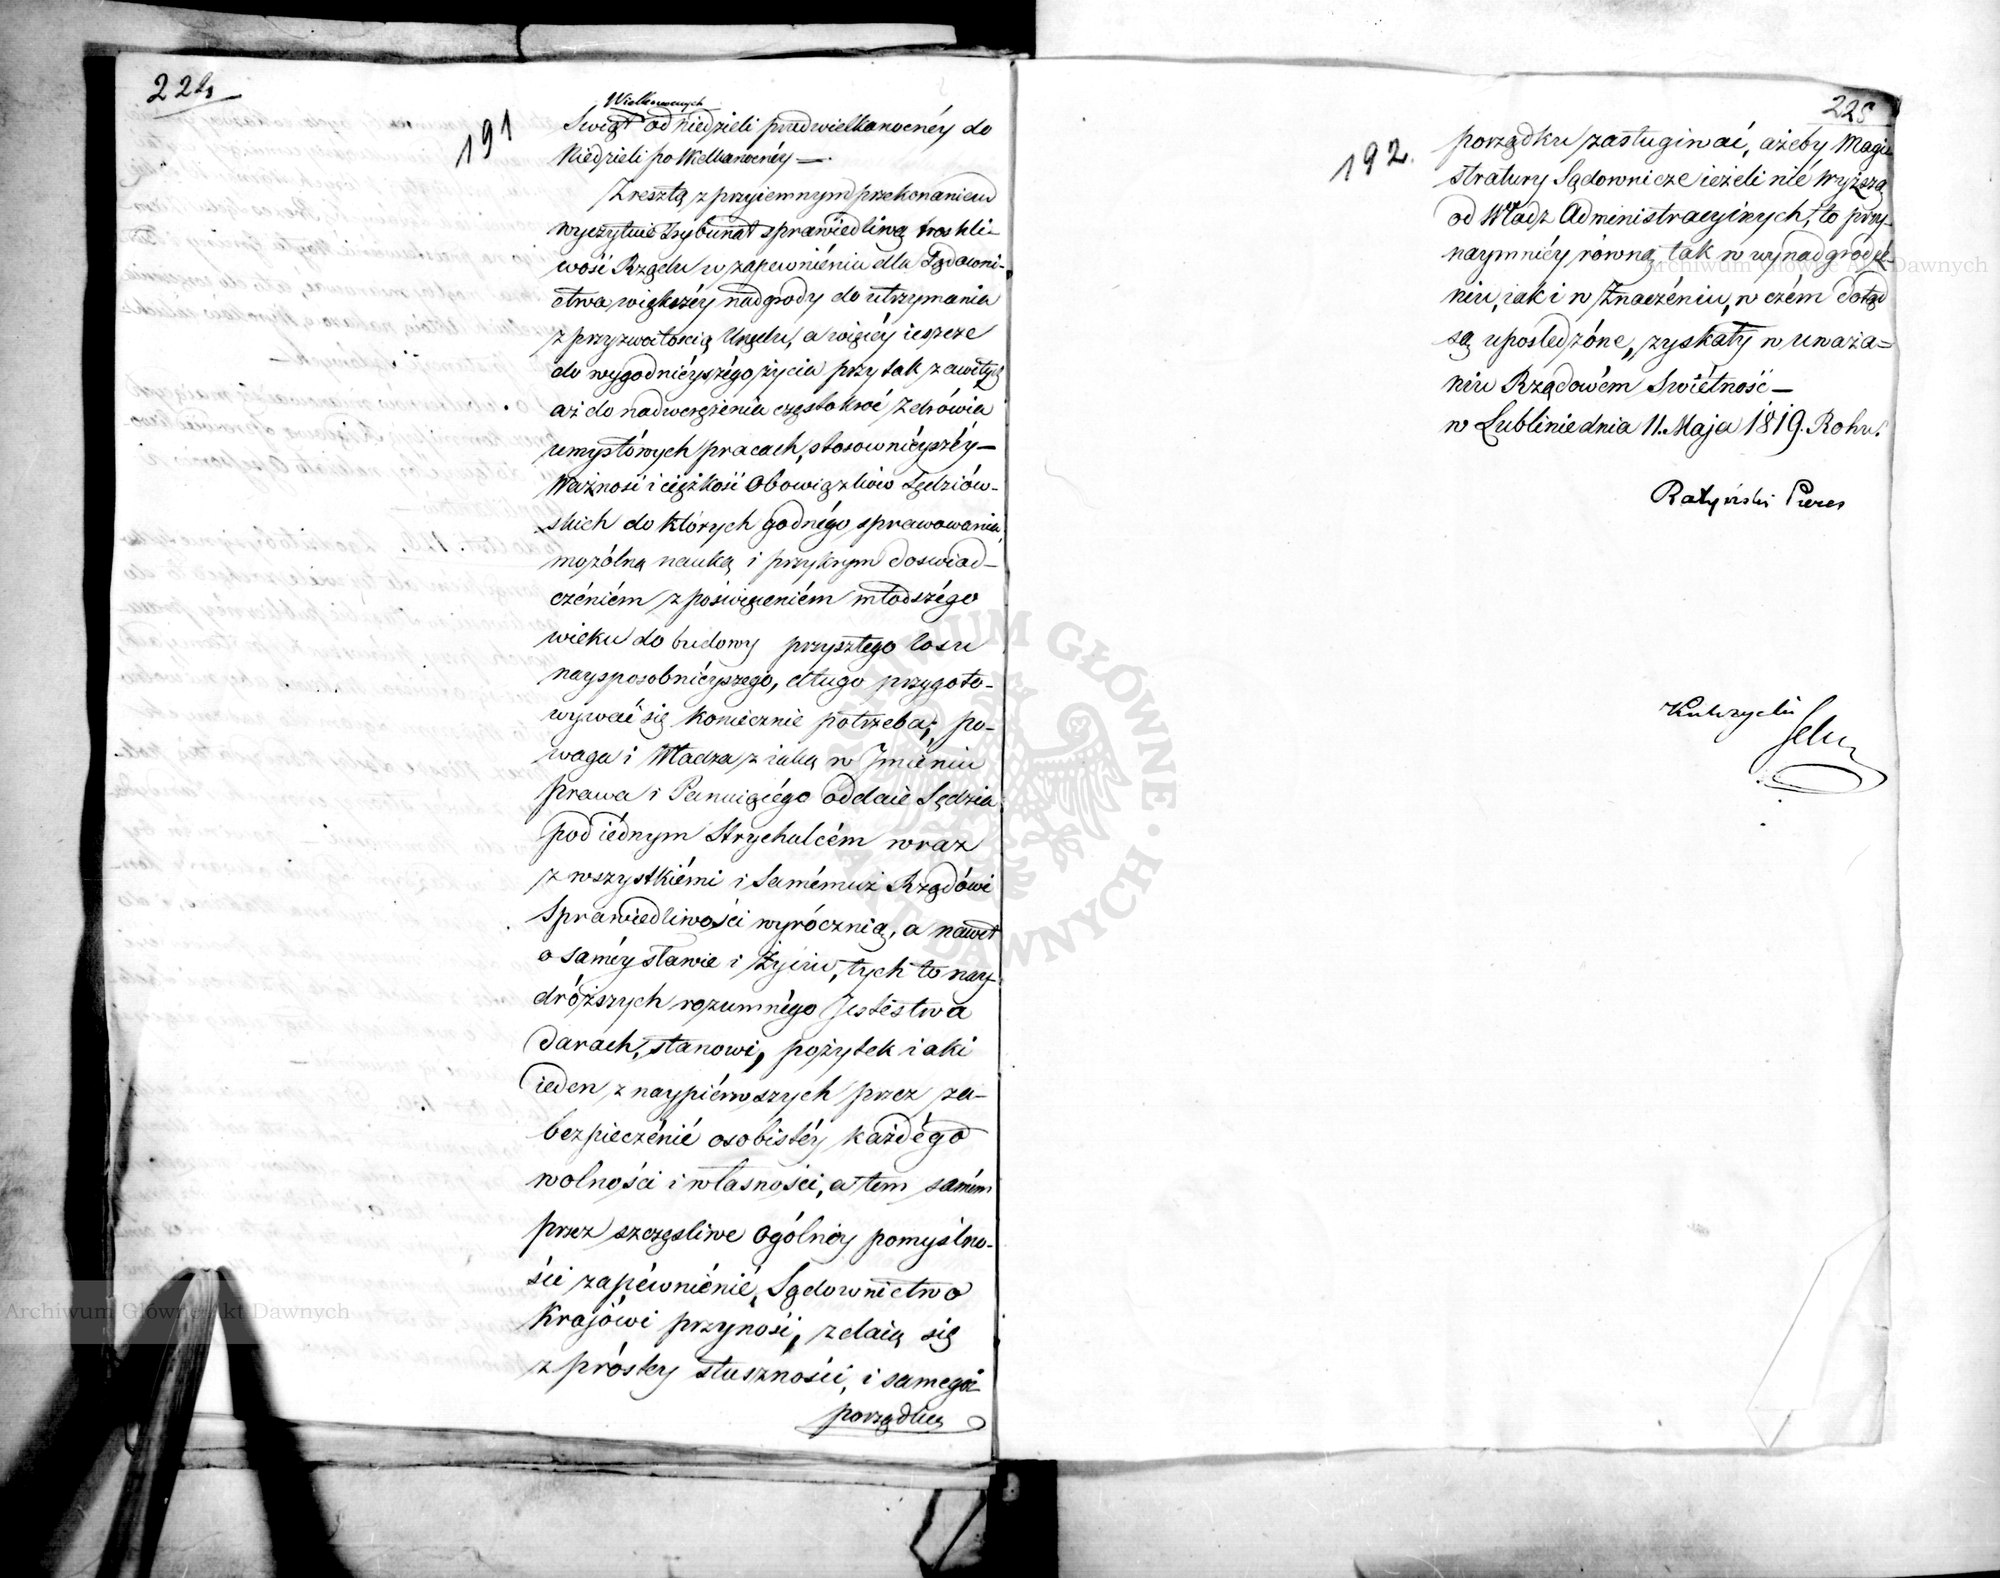 224
191
Wielkanocnych
Swiąt od Niedzieli przedwielkanocnéy do
Niedzieli po Wielkanocnéy —.
Zresztą z przyiemnym przekonaniem
wyczytuie Trybunał sprawiedliwą troskli-
wość Rządu w zapewnieniu dla Sądowni-
ctwa większéy nadgrody do utrzymania
z przyzwoitością Urzędu, a więcéy ieszcze
do wygodnieyszégo życia przy tak zawiłych
aż do nadwerężenia częstokroć Zdrówia
umysłówych pracach, stosownieyszéy —
Ważnosć i ciężkość Obowiązków Sędziów-
skich do których godnégo sprawowania,
mozólną nauką i przykrym doswiad-
czéniém z poświęceniém młodszégo
wieku do budowy przyszłego losu
naysposobniéyszego, długo przygoto-
wywać się koniecznie potrzeba; po-
waga i Władza z iaką w Jmieniu
prawa i Panuiącégo oddaie Sędzia
pod iédnym Strychulcém wraz
z wszystkiémi i Samémuż Rządówi
Sprawiedliwości wyrócznią, a nawet
o saméy sławie i życiu, tych to nay-
dróższych rozumnégo Jestéstwa
darach, stanowi, pożytek iaki
ieden z naypiérwszych przez za-
bezpieczénié osobistéy każdégo
wolności i własności, a tem samém
przez szczęsliwe Ogólnéy pomyślno-
ści zapéwniénié, Sądownictwo
Krajówi przynosi, zdaią się
z próstey słuszności, i samegoż
porządku
225
192.
porządku zasługiwać, ażeby Magi-
stratury Sądownicze ieżeli nié wyższą
od Władz Administracyinych, to przy-
naymniéy równą tak w wynadgrodze-
niu, iak i w Znaczéniu, w czém dotąd
są upośledzóne, zyskały w uważa=
niu Rządowém Swiétność —
w Lublinie dnia 11. Maja 1819. Roku.
Ratyński Prezes
Kulczycki Sekr
Archiwum Główne Akt Dawnych
Archiwum Główne Akt Dawnych
ARCHIWUM GŁÓWNE AKT DAWNYCH